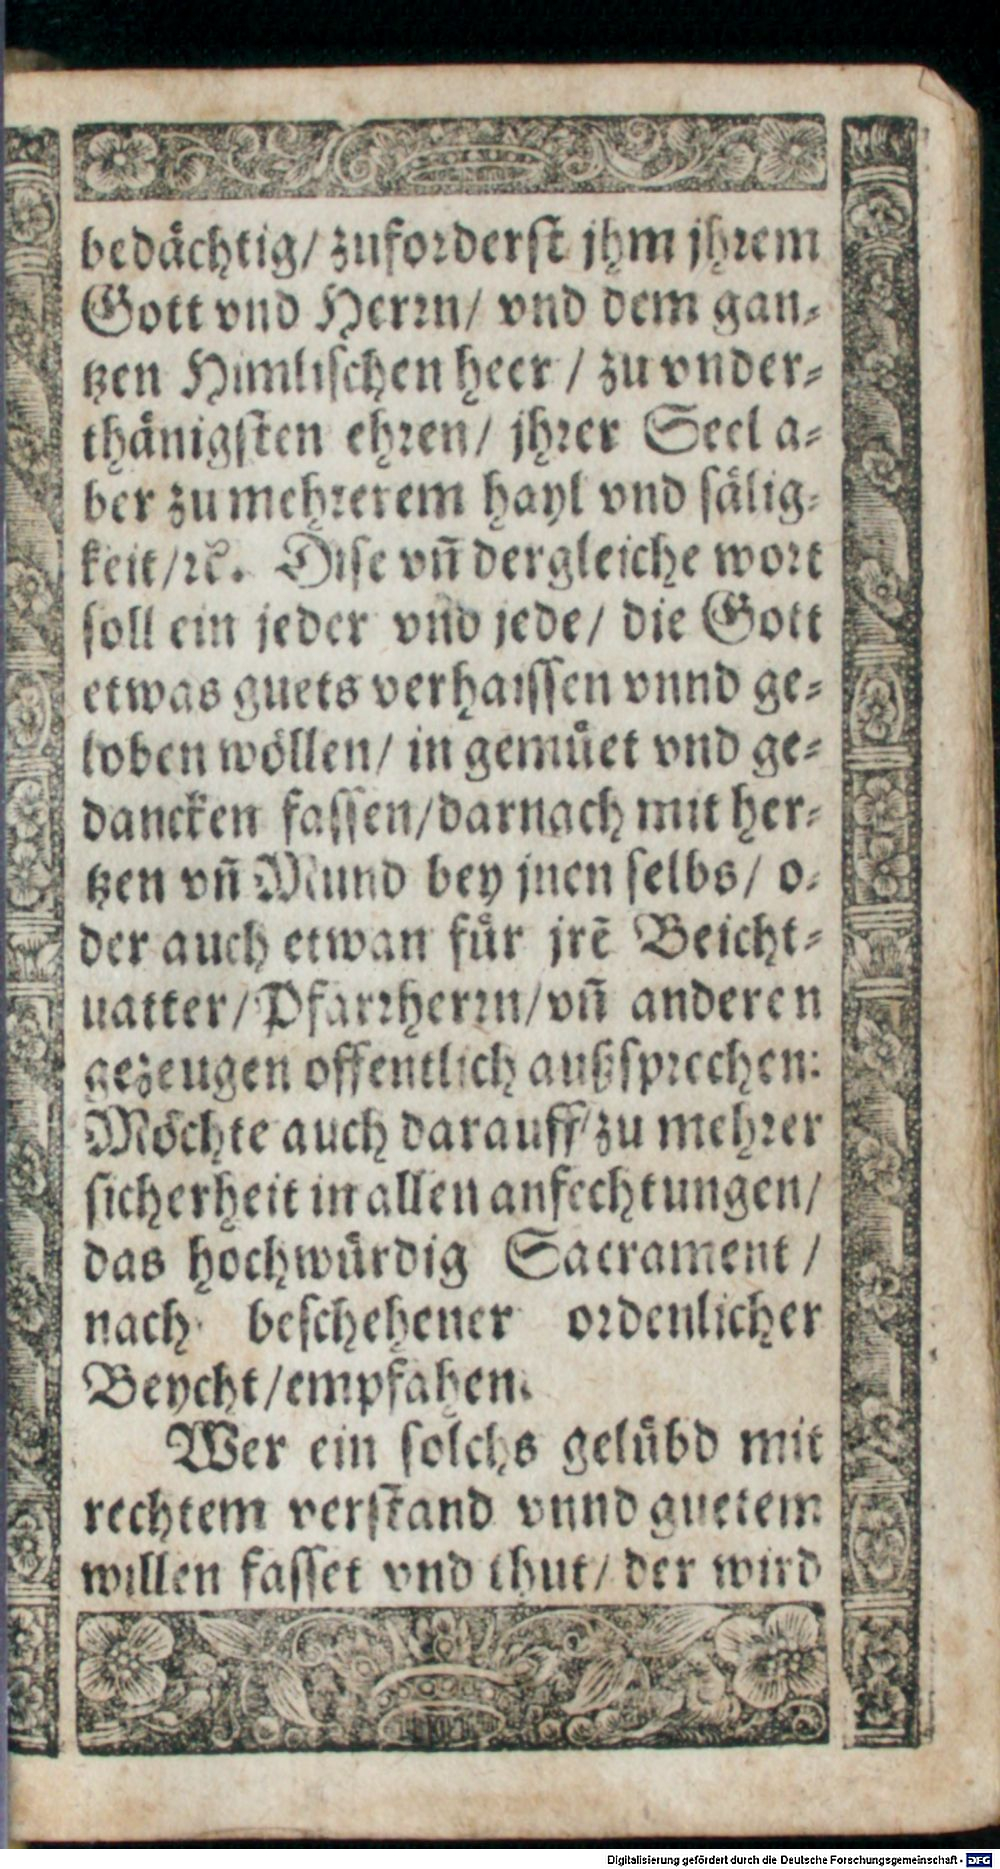 bedächtig/ zuforderst jhm jhrem
Gott vnd Herrn/ vnd dem gan⸗
tzen Himlischen heer / zu vnder⸗
thänigsten ehren/ jhrer Seel a⸗
ber zu mehrerem hayl vnd sälig⸗
keit/ꝛc. Dise vñ dergleiche wort
soll ein jeder vnd jede/ die Gott
etwas guets verhaissen vnnd ge⸗
loben wöllen/ in gemüet vnd ge⸗
dancken fassen/darnach mit her⸗
tzen vñ Mund bey jnen selbs/ o⸗
der auch etwan für jrẽ Beicht⸗
uatter/Pfarrherrn/vñ anderen
gezeugen offentlich außsprechen:
Möchte auch darauff/zu mehrer
sicherheit in allen anfechtungen/
das hochwürdig Sacrament /
nach beschehener ordenlicher
Beycht/empfahen.
Wer ein solchs gelübd mit
rechtem verstand vnnd guetem
willen fasset vnd thut/ der wird
Digitalisierung gefördert durch die Deutsche Forschungsgemeinschaft - DFG